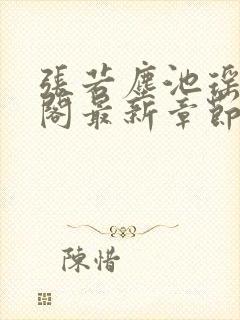 張若塵池瑤
閣最新章節
陳惜